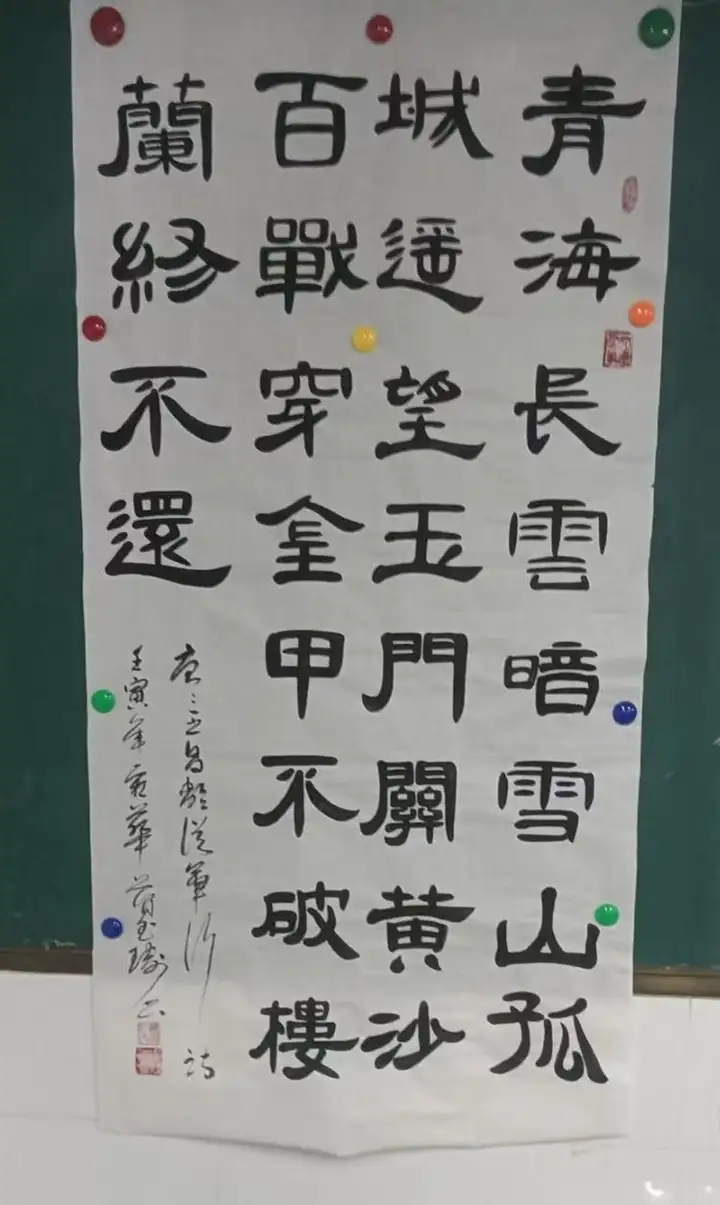 青海長雲暗雪山孤
城遥望玉門關黄沙
百戰穿金甲不破樓
蘭終不還
唐王昌齡從軍行詩
壬寅年